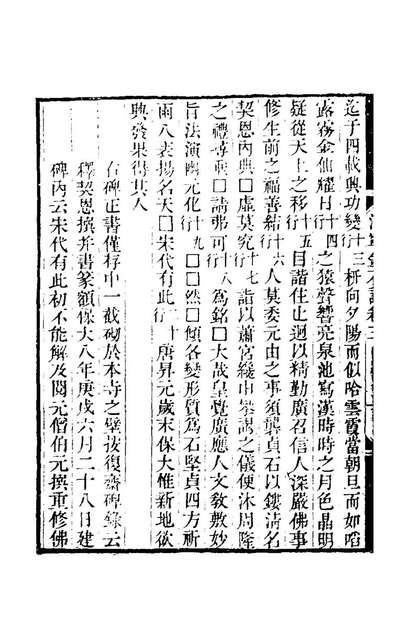 迄于四載輿功變行十三枅向夕陽而似哈雲霞當朝旦而如㗖
露霧金仙耀日行十四之猿聲響亮泉池寫漢時時之月色晶明
疑從天上之移行十五目諧住止迥以精勤廣召信人深嚴佛事
修生前之福善結行十六人莫委元由之事須龔貞石以鏤淸名
契恩內典□虛莫究行十七詣以蕭宮綫中舉謁之儀便沐周隆
之禮專興□請弗可行十八爲銘□大哉皇覺廣應人文敎敷妙
旨法演幽元化行十九□□然□傾各變形質爲石堅貞四方祈
雨八表揚名天□宋代有此行二十唐昇元歲末保大惟新地欲
興發果得其人
右碑正書僅存中一截砌於本寺之壁按復齋碑錄云
釋契恩撰并書篆額保大八年庚戌六月二十八日建
碑內云宋代有此初不能解及閱元僧伯元撰重修佛